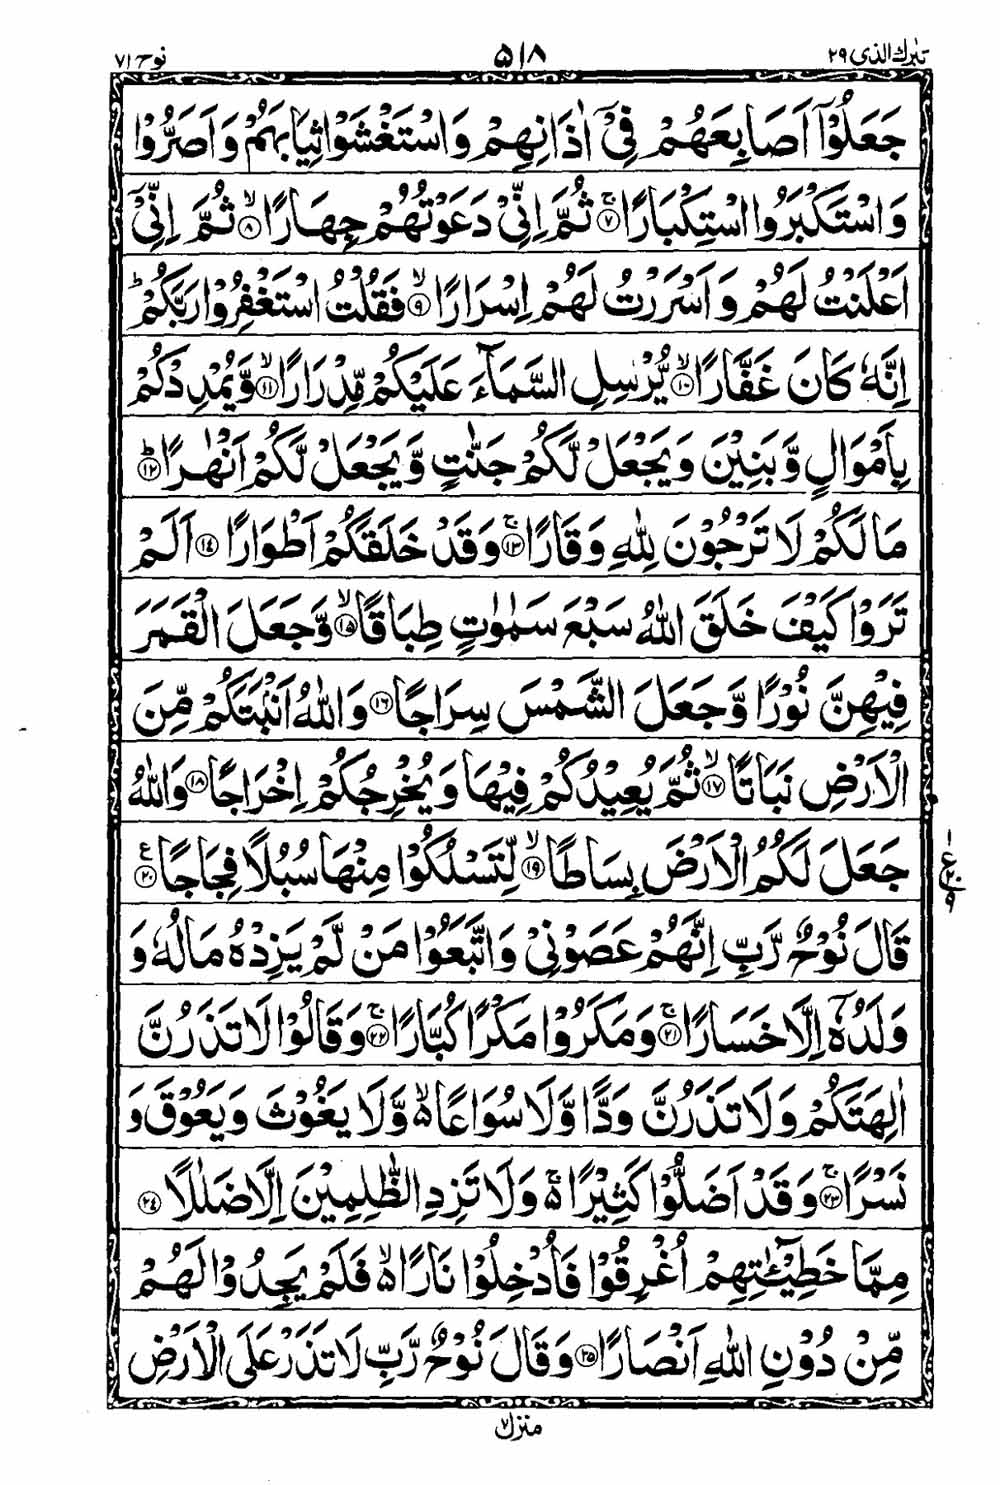 تبٰرك الذی ٢٩ ٥١٨ نوح ٧١
جَعَلُوْۤا اَصَابِعَهُمْ فِیْۤ اٰذَانِهِمْ وَاسْتَغْشَوْا ثِیَابَهُمْ وَاَصَرُّوْا
وَاسْتَكْبَرُوا اسْتِكْبَارًا ۚ﴿٧﴾ ثُمَّ اِنِّیْ دَعَوْتُهُمْ جِهَارًا ۙ﴿٨﴾ ثُمَّ اِنِّیْۤ
اَعْلَنْتُ لَهُمْ وَاَسْرَرْتُ لَهُمْ اِسْرَارًا ۙ﴿٩﴾ فَقُلْتُ اسْتَغْفِرُوْا رَبَّكُمْ ؕ
اِنَّهٗ كَانَ غَفَّارًا ۙ﴿١٠﴾ یُّرْسِلِ السَّمَآءَ عَلَیْكُمْ مِّدْرَارًا ۙ﴿١١﴾ وَّیُمْدِدْكُمْ
بِاَمْوَالٍ وَّبَنِیْنَ وَیَجْعَلْ لَّكُمْ جَنّٰتٍ وَّیَجْعَلْ لَّكُمْ اَنْهٰرًا ؕ﴿١٢﴾
مَا لَكُمْ لَا تَرْجُوْنَ لِلّٰهِ وَقَارًا ۚ﴿١٣﴾ وَقَدْ خَلَقَكُمْ اَطْوَارًا ﴿١٤﴾ اَلَمْ
تَرَوْا كَیْفَ خَلَقَ اللّٰهُ سَبْعَ سَمٰوٰتٍ طِبَاقًا ۙ﴿١٥﴾ وَّجَعَلَ الْقَمَرَ
فِیْهِنَّ نُوْرًا وَّجَعَلَ الشَّمْسَ سِرَاجًا ﴿١٦﴾ وَاللّٰهُ اَنْۢبَتَكُمْ مِّنَ
الْاَرْضِ نَبَاتًا ۙ﴿١٧﴾ ثُمَّ یُعِیْدُكُمْ فِیْهَا وَیُخْرِجُكُمْ اِخْرَاجًا ﴿١٨﴾ وَاللّٰهُ
جَعَلَ لَكُمُ الْاَرْضَ بِسَاطًا ۙ﴿١٩﴾ لِّتَسْلُكُوْا مِنْهَا سُبُلًا فِجَاجًا ﴿٢٠﴾ ع
قَالَ نُوْحٌ رَّبِّ اِنَّهُمْ عَصَوْنِیْ وَاتَّبَعُوْا مَنْ لَّمْ یَزِدْهُ مَالُهٗ وَ
وَلَدُهٗۤ اِلَّا خَسَارًا ۚ﴿٢١﴾ وَمَكَرُوْا مَكْرًا كُبَّارًا ۚ﴿٢٢﴾ وَقَالُوْا لَا تَذَرُنَّ
اٰلِهَتَكُمْ وَلَا تَذَرُنَّ وَدًّا وَّلَا سُوَاعًا ۙ۬ وَّلَا یَغُوْثَ وَیَعُوْقَ وَ
نَسْرًا ۚ﴿٢٣﴾ وَقَدْ اَضَلُّوْا كَثِیْرًا ۚ۬ وَلَا تَزِدِ الظّٰلِمِیْنَ اِلَّا ضَلٰلًا ﴿٢٤﴾
مِمَّا خَطِیْٓـٰٔتِهِمْ اُغْرِقُوْا فَاُدْخِلُوْا نَارًا ۙ۬ فَلَمْ یَجِدُوْا لَهُمْ
مِّنْ دُوْنِ اللّٰهِ اَنْصَارًا ﴿٢٥﴾ وَقَالَ نُوْحٌ رَّبِّ لَا تَذَرْ عَلَی الْاَرْضِ
منزل ٧